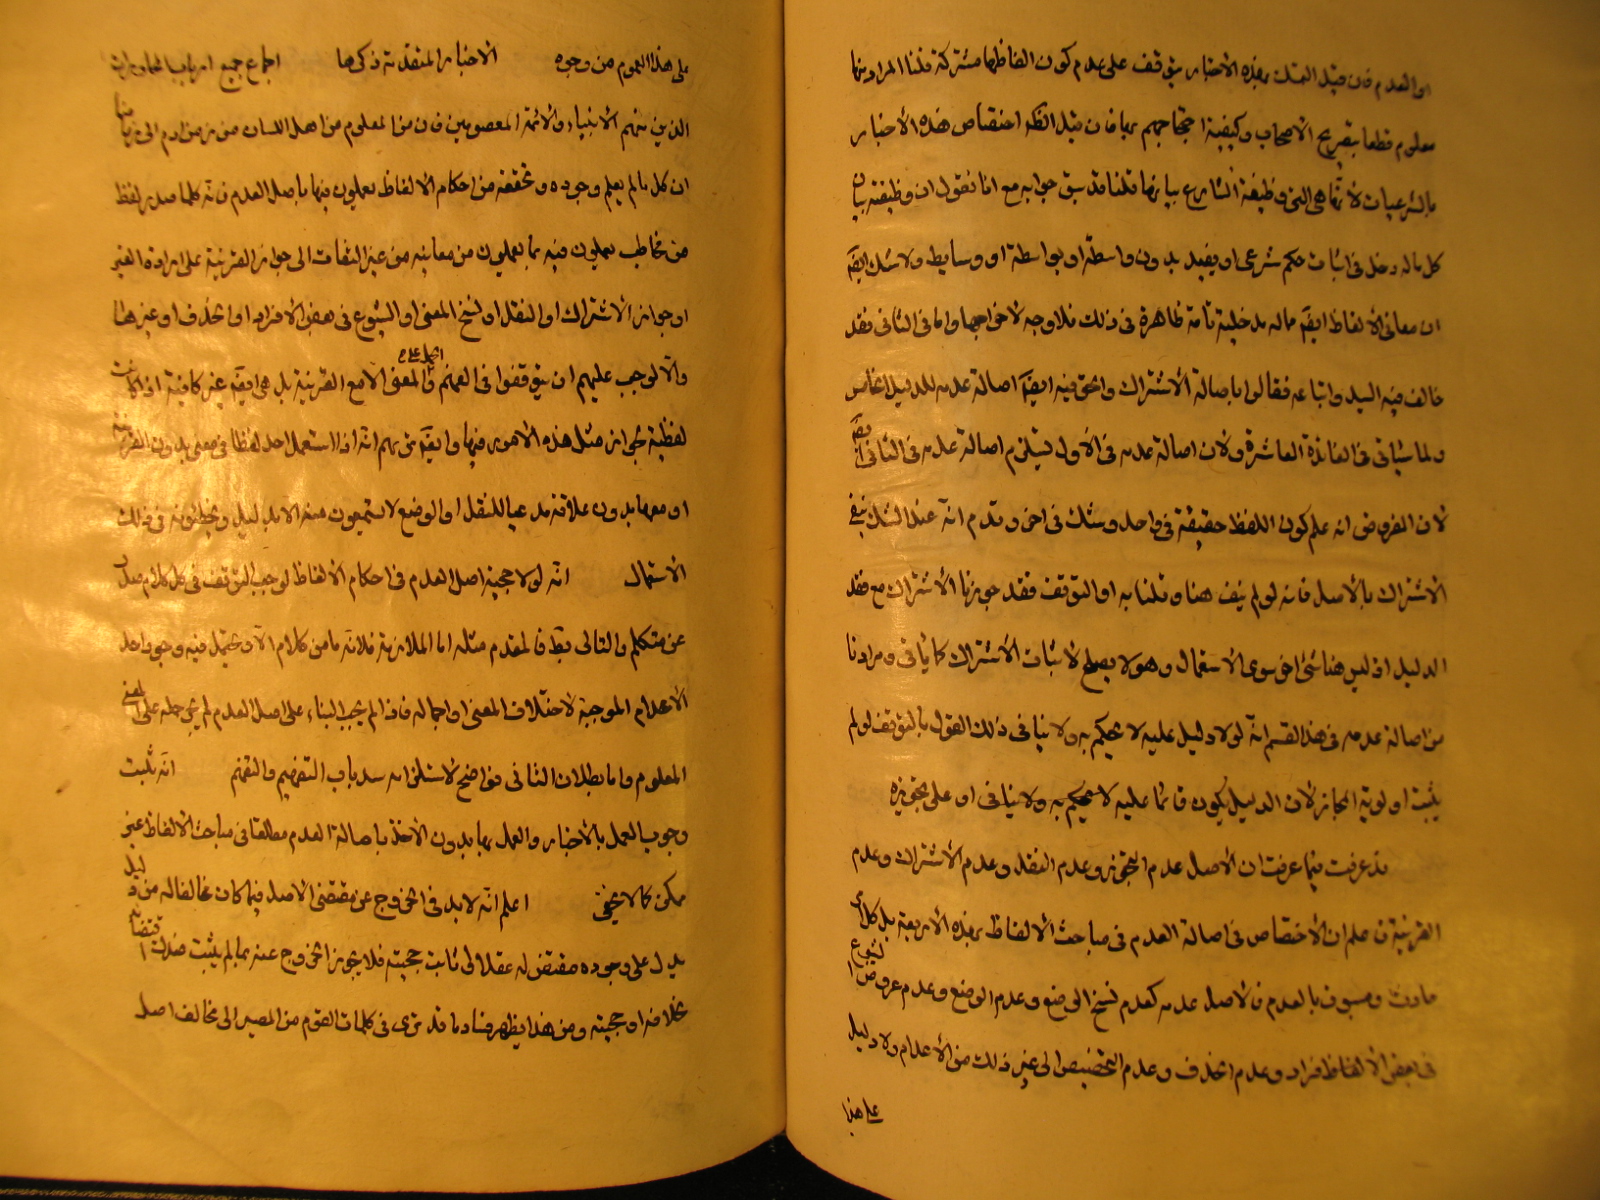 او العدم فان قيل التمسك بهذه الأخبار يتوقف على عدم كون الفاظها مشتركة قلنا المراد منها
معلوم قطعا بتصريح الأصحاب وكيفية احتجاجهم بها فان قيل الظ اختصاص هذه الأخبار
بالشرعيات لأنها هي التي وظيفة الشارع بيانها قلنا قد سبق جوابه مع انا نقول ان وظيفته بيان
كل ماله دخل في اثبات حكم شرعي او يفيد بدون واسطة او بواسطة او وسايط ولا شك ايضا
ان معاني الألفاظ ايضا ماله مدخلية تامة ظاهرة في ذلك فلا وجه لاخراجها واما في الثاني فقد
خالف فيه السيد واتباعه فقالوا باصالة الأشتراك والحق فيه ايضا اصالة عدمه للدليل الخامس
ولما سيأتي في الفائدة العاشرة ولان اصالة عدمه في الأول يستلزم اصالة عدمه في الثاني ايضا
لان المفروض انه علم كون اللفظ حقيقة في واحد وشك في اخر وقدم انه عند الشك ينفى
الأشتراك بالأصل فانه لو لم ينف هنا وقلنا به او التوقف فقد جوزنا الأشتراك مع فقد
الدليل اذ ليس هنا شئ اخر سوى الاستعمال وهو لا يصلح لاثبات الاشتراك كما يأتي ومرادنا
من اصالة عدمه في هذا القسم انه لو لا دليل عليه لا نحكم به ولا ينافي ذلك القول بالتوقف لو لم
يثبت اولوية المجاز لان الدليل يكون قائما عليه لا نحكم به ولا ينافي او على تجويزه
قد عرفت فيما عرفت ان الأصل عدم التجوز وعدم النقل وعدم الأشتراك وعدم
القرينة فاعلم ان لا اختصاص في اصالة العدم في مباحث الألفاظ بهذه الأربعة بل كل امر
حادث ومسبوق بالعدم فالاصل عدمه كعدم نسخ الوضع وعدم الوضع وعدم عروض الشيوع
في بعض الألفاظ فراد وعدم الحذف وعدم التخصيص الى غير ذلك من الأعدام ولا دليل
على هذا
على هذا العموم من وجوه الاخبار المتقدمة ذكرها اجماع جميع ارباب المحاورات
الذين منهم الأنبياء والأئمة المعصومين فان من المعلوم من اهل اللسان من زمن ادم الى زماننا
ان كل ما لم يعلم وجوده وتحققه من احكام الألفاظ يعملون فيها باصل العدم فانه كلما صدر لفظ
من مخاطب يعملون فيه بما يعملون من معانيه من غير التفات الى جواز القرينة على ارادة الغير
او جواز الأشتراك او النقل او نسخ المعنى او الشيوع في بعض الأفراد او الحذف او غيرها
والا لوجب عليهم ان يتوقفوا في الفهم والمعنى الا مع القرينة بل هي ايضا غير كافية اذا كانت
لفظية لجواز مثل هذه الأمور فيها وايضا نريهم انه اذا استعمل احد لفظا في معنى بدون القرينة
او معها بدون علاقة مدعيا للنقل او الوضع لا يسمعون منه الا بدليل ويخطئونه في ذلك
الاستعمال انه لو لا حجية اصل العدم في احكام الالفاظ لوجب التوقف في كل كلام صدر
عن متكلم والتالي بط فالمقدم مثله اما الملازمة فلانه ما من كلام الا ويحتمل فيه وجود احد
الأعدام الموجبة لاختلاف المعنى او اجماله فاذا لم يجب البناء على اصل العدم لم يجز حمله على المعنى
المعلوم واما بطلان الثاني فواضح لاستلزامه سد باب التفهيم والتفهم انه ثبت
وجوب العمل بالأخبار والعمل بها بدون الأخذ باصالة العدم مطلقا في مباحث الالفاظ غير
ممكن كما لا يخفى اعلم انه لا بد في الخروج عن مقتضى الاصل فيما كان مخالفا له من دليل
يدل على وجوده مقتض له عقلا الى ثابت حجيته فلا يجوز الخروج عنه بما لم يثبت اقتضائه
بخلافه او حجيته ومن هذا يظهر فساد ما قد ترى في كلمات القوم من المصير الى مخالف اصل